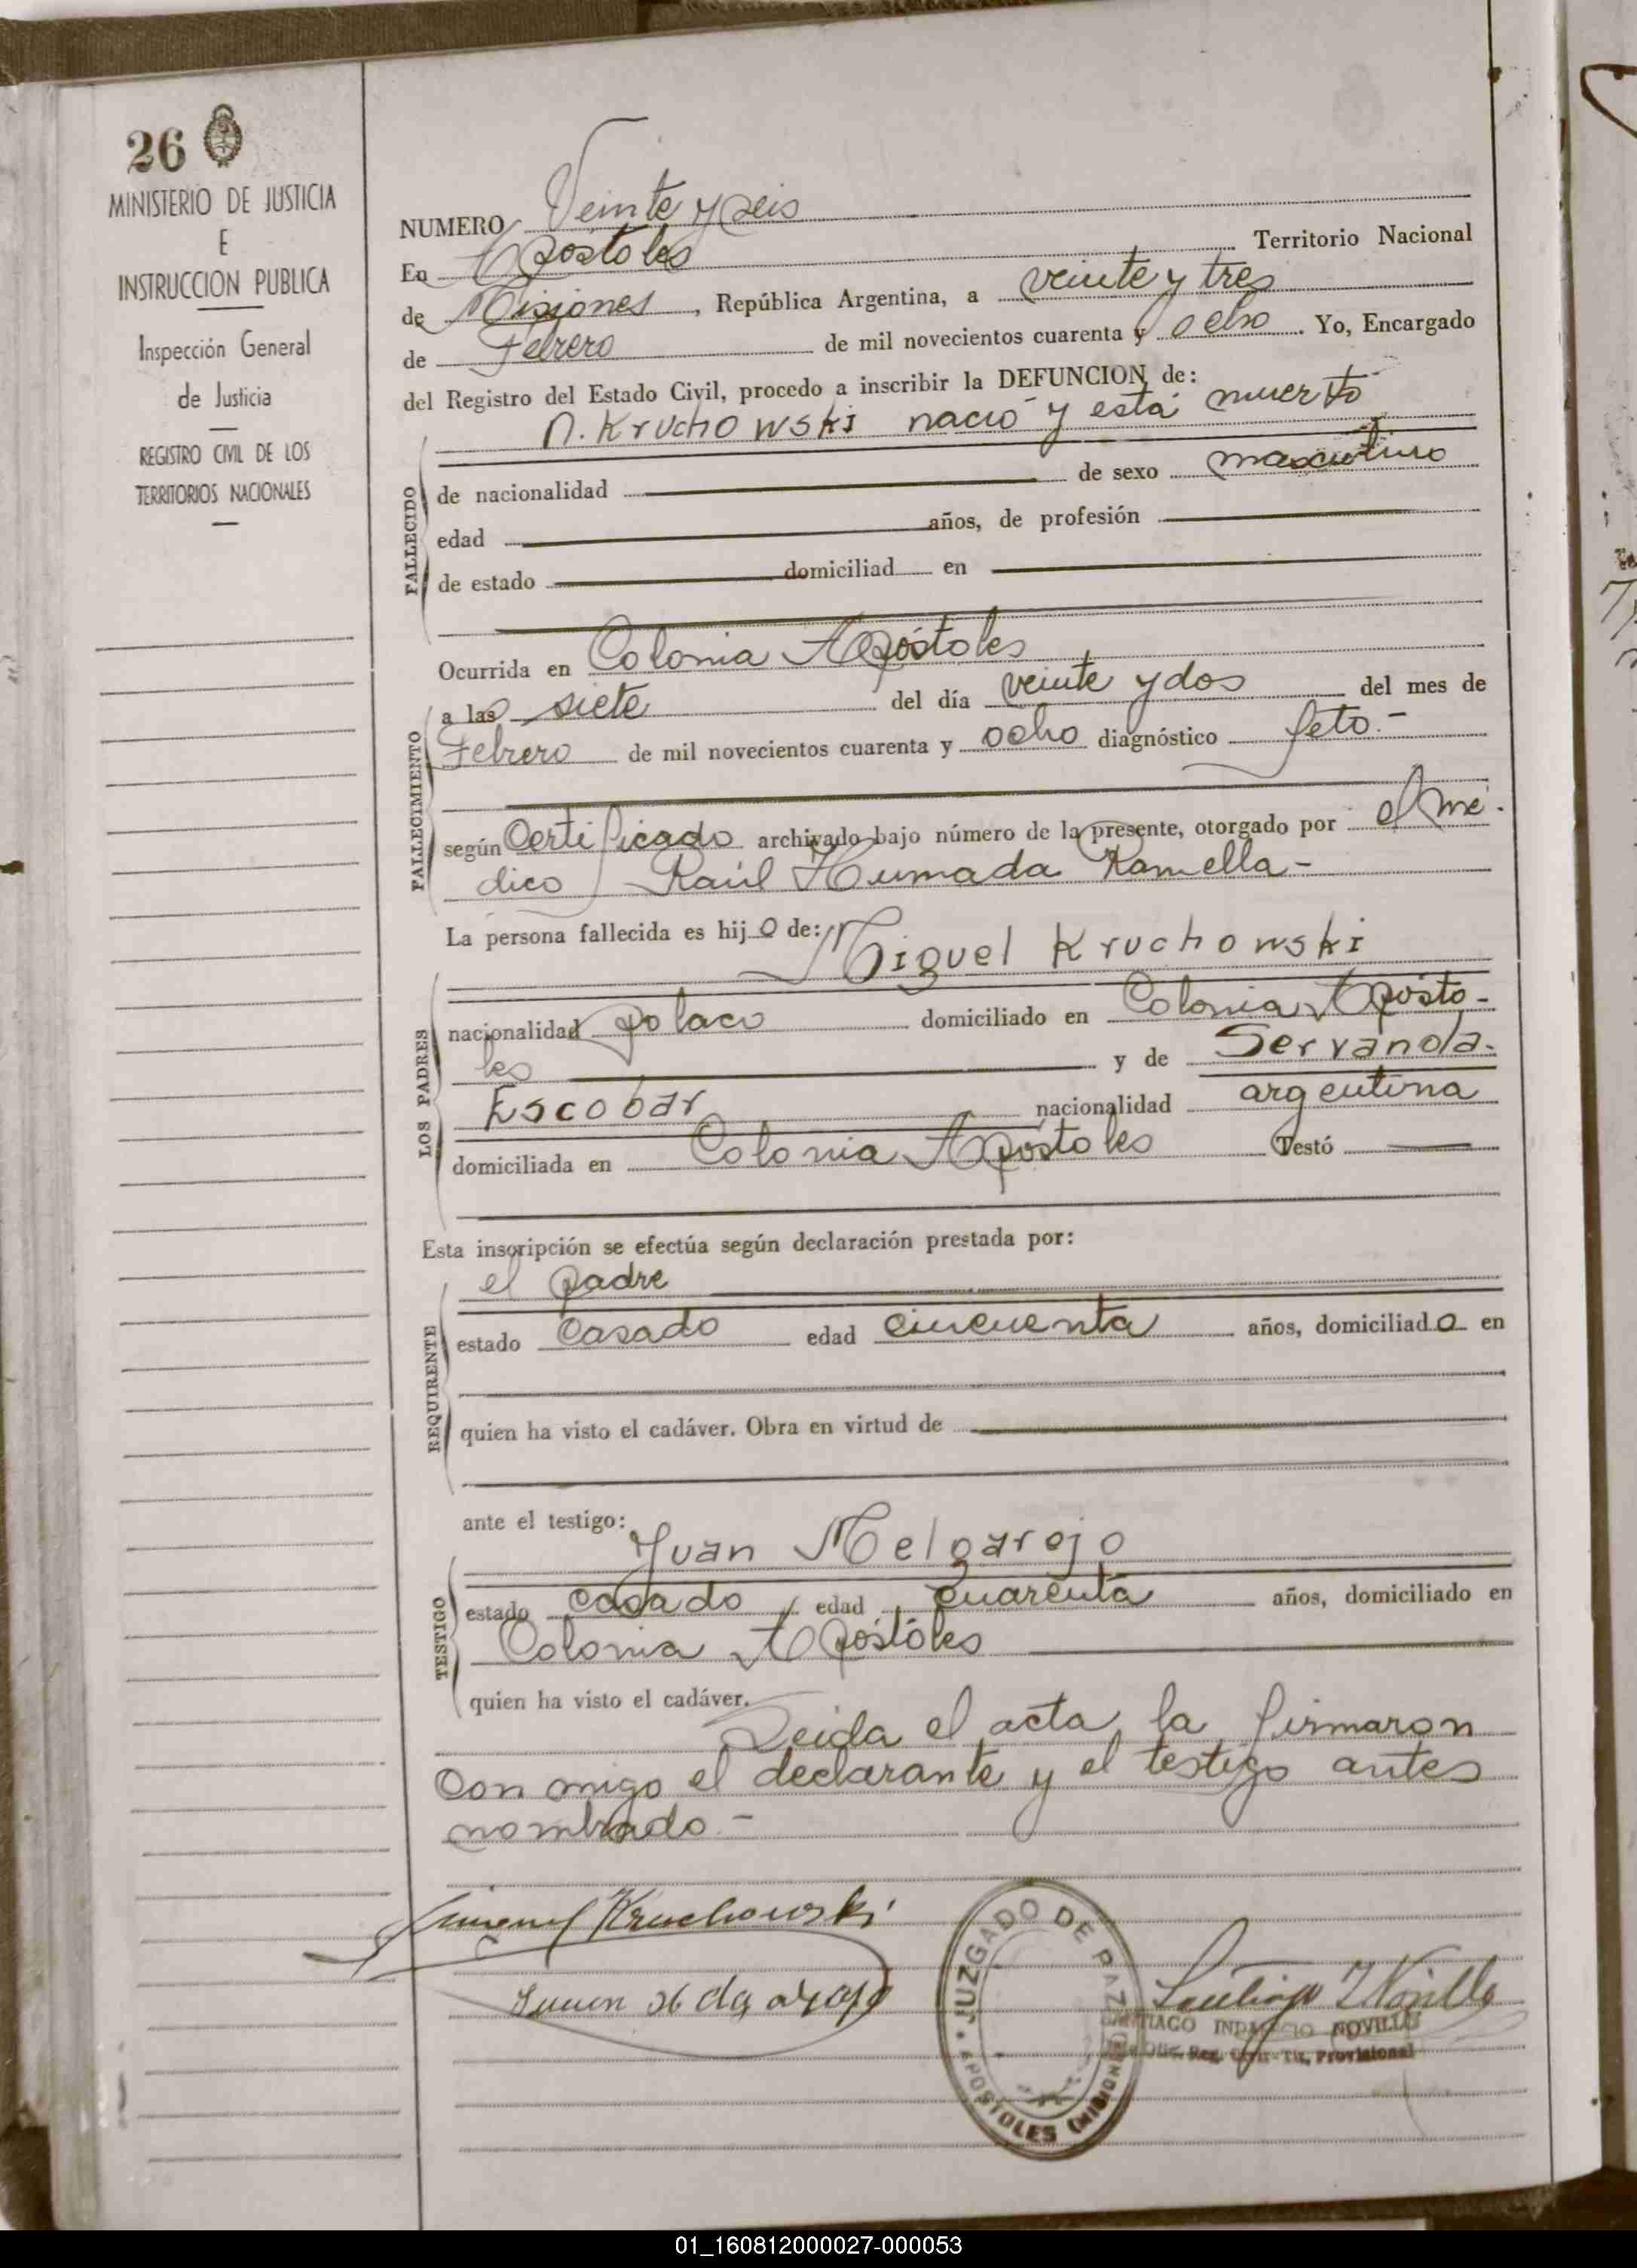 26
MINISTERIO DE JUSTICIA
E
INSTRUCCION PUBLICA
Inspección General
de Justicia
REGISTRO CIVIL DE LOS
TERRITORIOS NACIONALES
NUMERO Veinte y seis
En Apóstoles Territorio Nacional
de Misiones, República Argentina, a veinte y tres
de Febrero de mil novecientos cuarenta y ocho. Yo, Encargado
del Registro del Estado Civil, procedo a inscribir la DEFUNCION de:
N. Kruchowski nació y está muerto
FALLECIDO
de nacionalidad de sexo masculino
edad años, de profesión
de estado domiciliad en
Ocurrida en Colonia Apóstoles
FALLECIMIENTO
a las siete del día veinte y dos del mes de
Febrero de mil novecientos cuarenta y ocho diagnóstico feto.-
según Certificado archivado bajo número de la presente, otorgado por el mé-
dico Raúl Humada Ramella-
La persona fallecida es hijo de: Miguel Kruchowski
LOS PADRES
nacionalidad polaco domiciliado en Colonia Apósto-
les y de Servanda-
Escobar nacionalidad argentina
domiciliada en Colonia Apóstoles Testó
Esta inscripción se efectúa según declaración prestada por:
el padre
REQUIRENTE
estado Casado edad cincuenta años, domiciliado en
quien ha visto el cadáver. Obra en virtud de
ante el testigo: Juan Melgarejo
TESTIGO
estado casado, edad cuarenta años, domiciliado en
Colonia Apóstoles
quien ha visto el cadáver.
Leida el acta, la firmaron
con migo el declarante y el testigo antes
nombrado.-
Kruchowski
JUZGADO DE PAZ
APOSTOLES (MISIONES)
SANTIAGO INDALECIO NOVILLO
Provisional
01_160812000027-000053